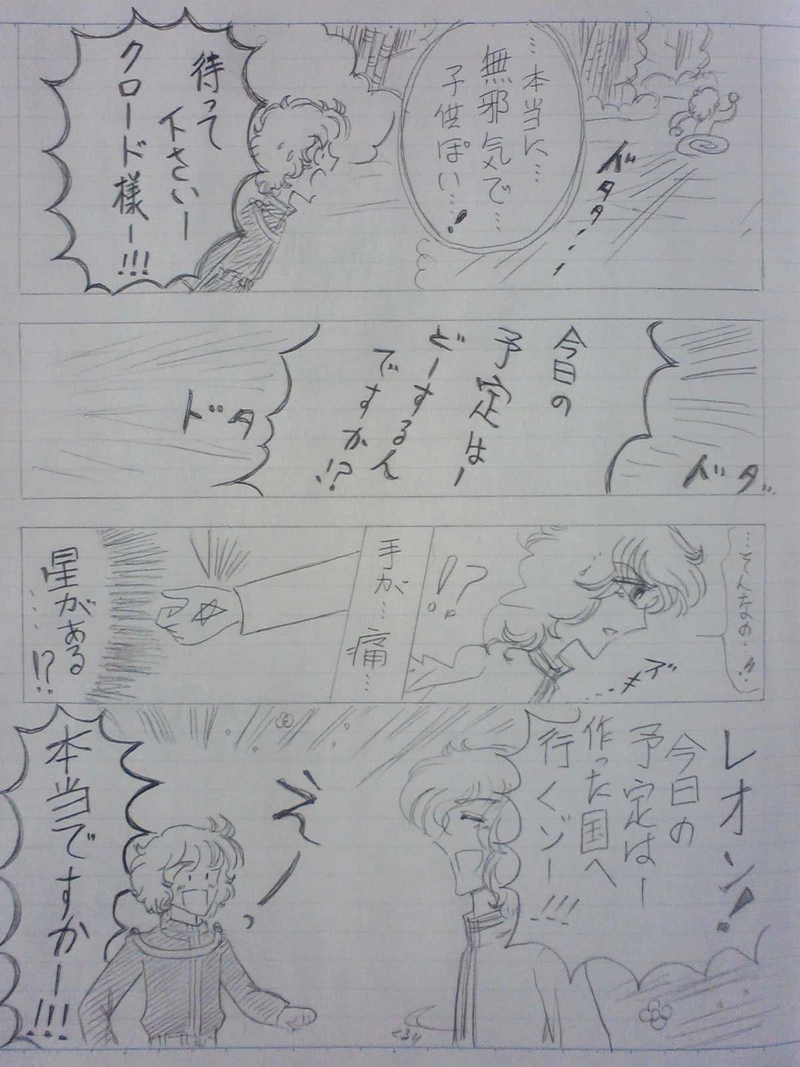 …本当に…
無邪気で…
子供ぽい…!
ドタタ…
待って
下さいー
クロード様ー!!!
今日の
予定はー
どーするん
ですか!?
ドダ…
ドタ
…そんなの…!!
!?
手が…痛…
星がある
…!?
レオン!
今日の
予定はー
作った国へ
行くゾー!!!
くるり
え゙ー
本当ですかー!!!